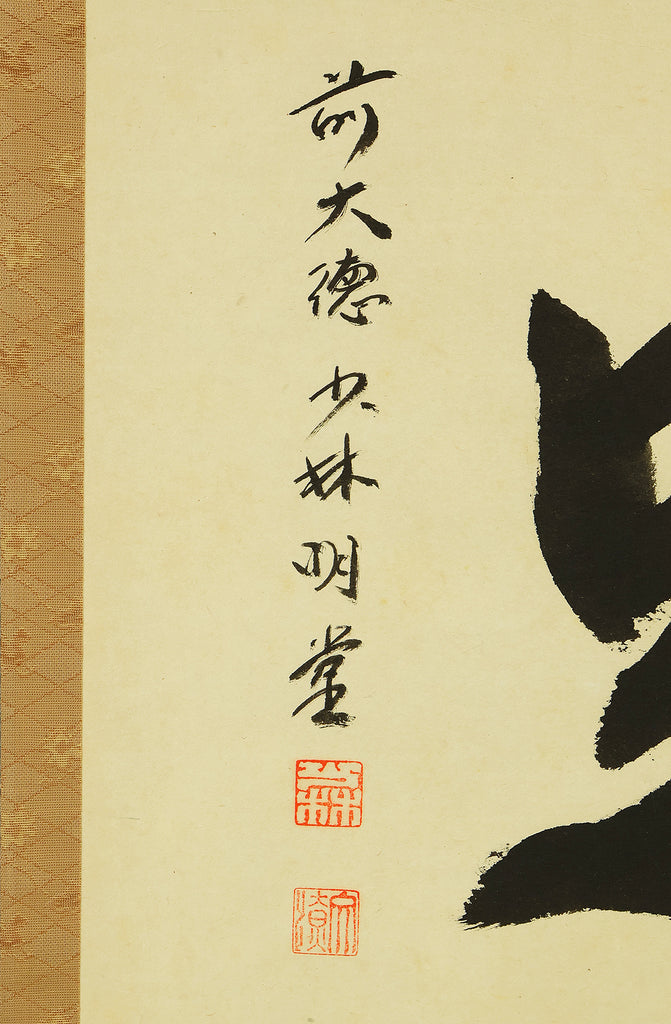 前大德少林明堂